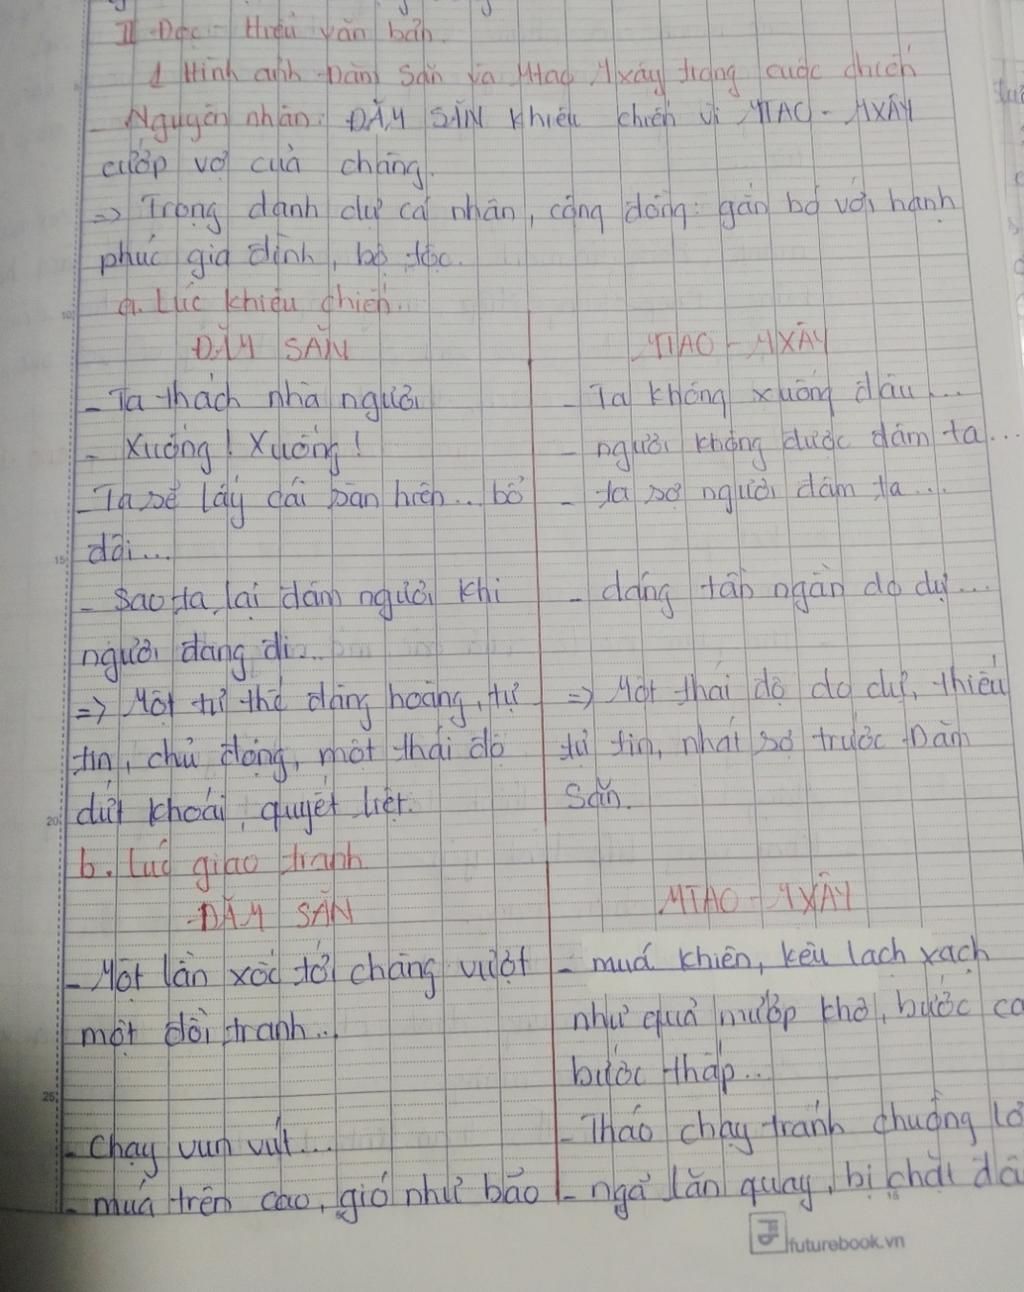 II Đọc - Hiểu văn bản.
1 Hình ảnh Đăm Săn và Mtao Mxây trong cuộc chiến
- Nguyên nhân: ĐĂM SĂN khiêu chiến vì MTAO - MXÂY
cướp vợ của chàng.
=> Trọng danh dự cá nhân, cộng đồng: gắn bó với hạnh
phúc gia đình, bộ tộc.
a. Lúc khiêu chiến.
ĐĂM SĂN
MTAO - MXÂY
- Ta thách nhà ngươi
- Ta không xuống đâu...
- Xuống! Xuống!
- ngươi không được đâm ta...
- Ta sẽ lấy cái sàn hiên.. bổ
- ta sợ ngươi đâm ta...
đôi...
- Sao ta lại đâm ngươi khi
- dáng tần ngần do dự...
ngươi đang đi...
=> Một tư thế đàng hoàng, tự
=> Một thái độ do dự, thiếu
tin, chủ động, một thái độ
tự tin, nhát sợ trước Đăm
dứt khoát, quyết liệt.
Săn.
b. Lúc giao tranh
ĐĂM SĂN
MTAO - MXÂY
- Một lần xốc tới chàng vượt
- múa khiên, kêu lạch xạch
một đồi tranh...
như quả mướp khô, bước ca
bước thấp...
- Chạy vun vút...
- Tháo chạy tránh chuồng lợ
- múa trên cao, gió như bão
- ngã lăn quay, bị chặt đầ
15
20
25
futurebook.vn